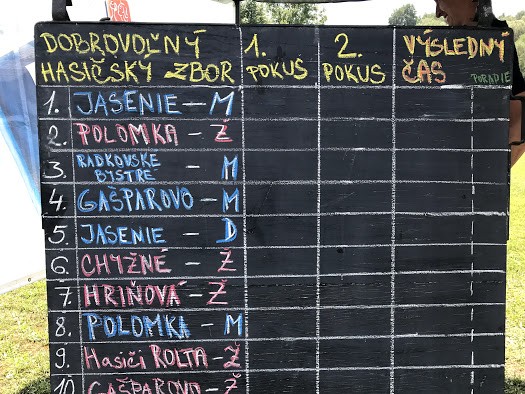 DOBROVOĽNÝ
HASIČSKÝ ZBOR
1.
POKUS
2.
POKUS
VÝSLEDNÝ
ČAS
PORADIE
1. JASENIE - M
2. POLOMKA - Ž
3. RADKOVSKÉ
BYSTRÉ M
4. GAŠPAROVO - M
5. JASENIE - D
6. CHYŽNÉ - Ž
7. HRIŇOVÁ - Ž
8. POLOMKA - M
9. Hasiči ROLTA - Ž
10 GAŠPAROVO - Ž